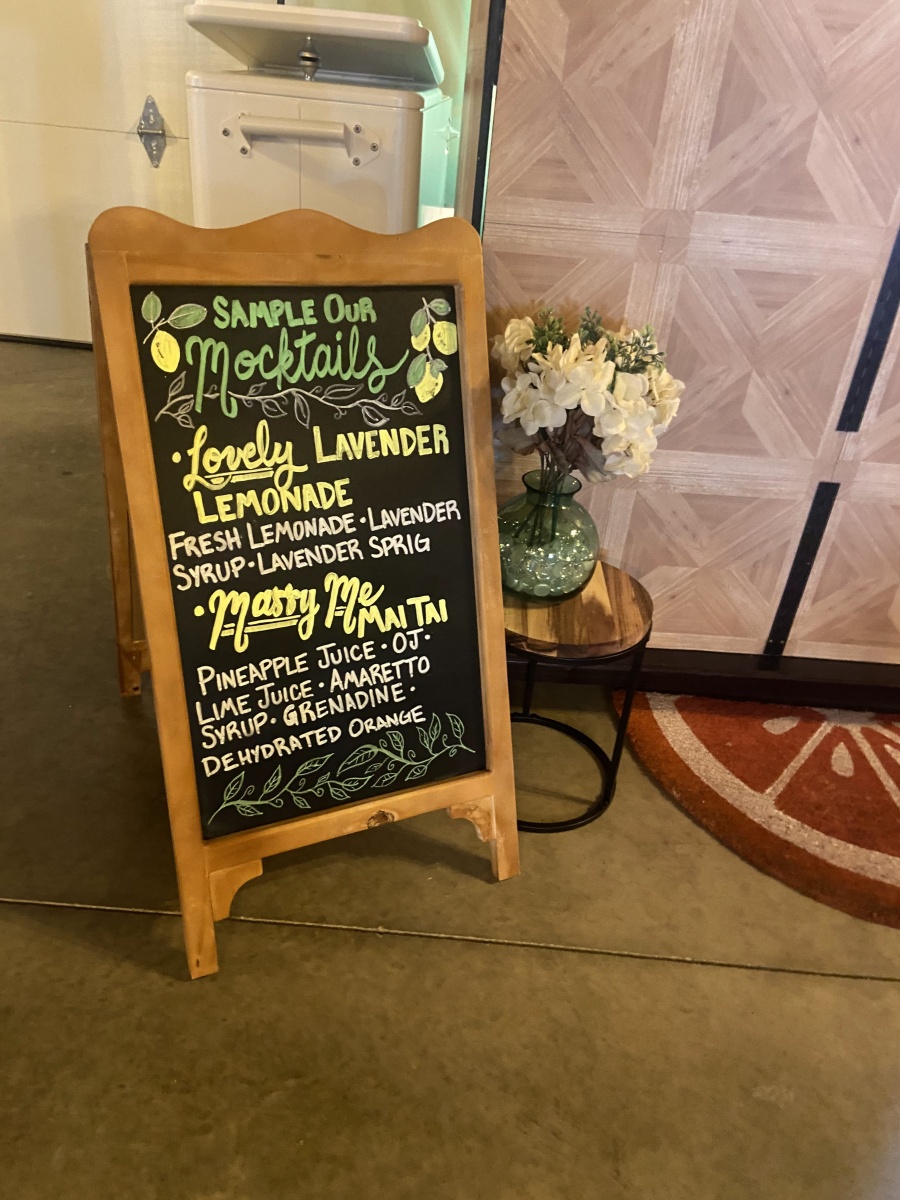 SAMPLE OUR
Mocktails
• Lovely LAVENDER
LEMONADE
FRESH LEMONADE • LAVENDER
SYRUP • LAVENDER SPRIG
• Marry Me
MAI TAI
PINEAPPLE JUICE • OJ •
LIME JUICE • AMARETTO
SYRUP • GRENADINE •
DEHYDRATED ORANGE